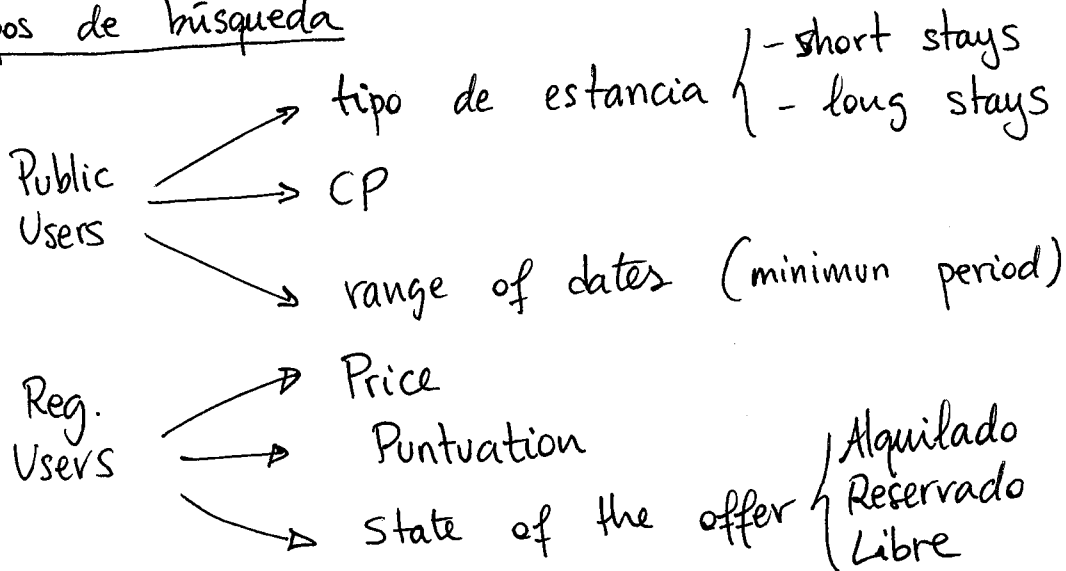 de búsqueda
tipo de estancia
- short stays
- long stays
Public
Users
CP
range of dates (minimun period)
Reg.
Users
Price
Puntuation
State of the offer
Alquilado
Reservado
Libre